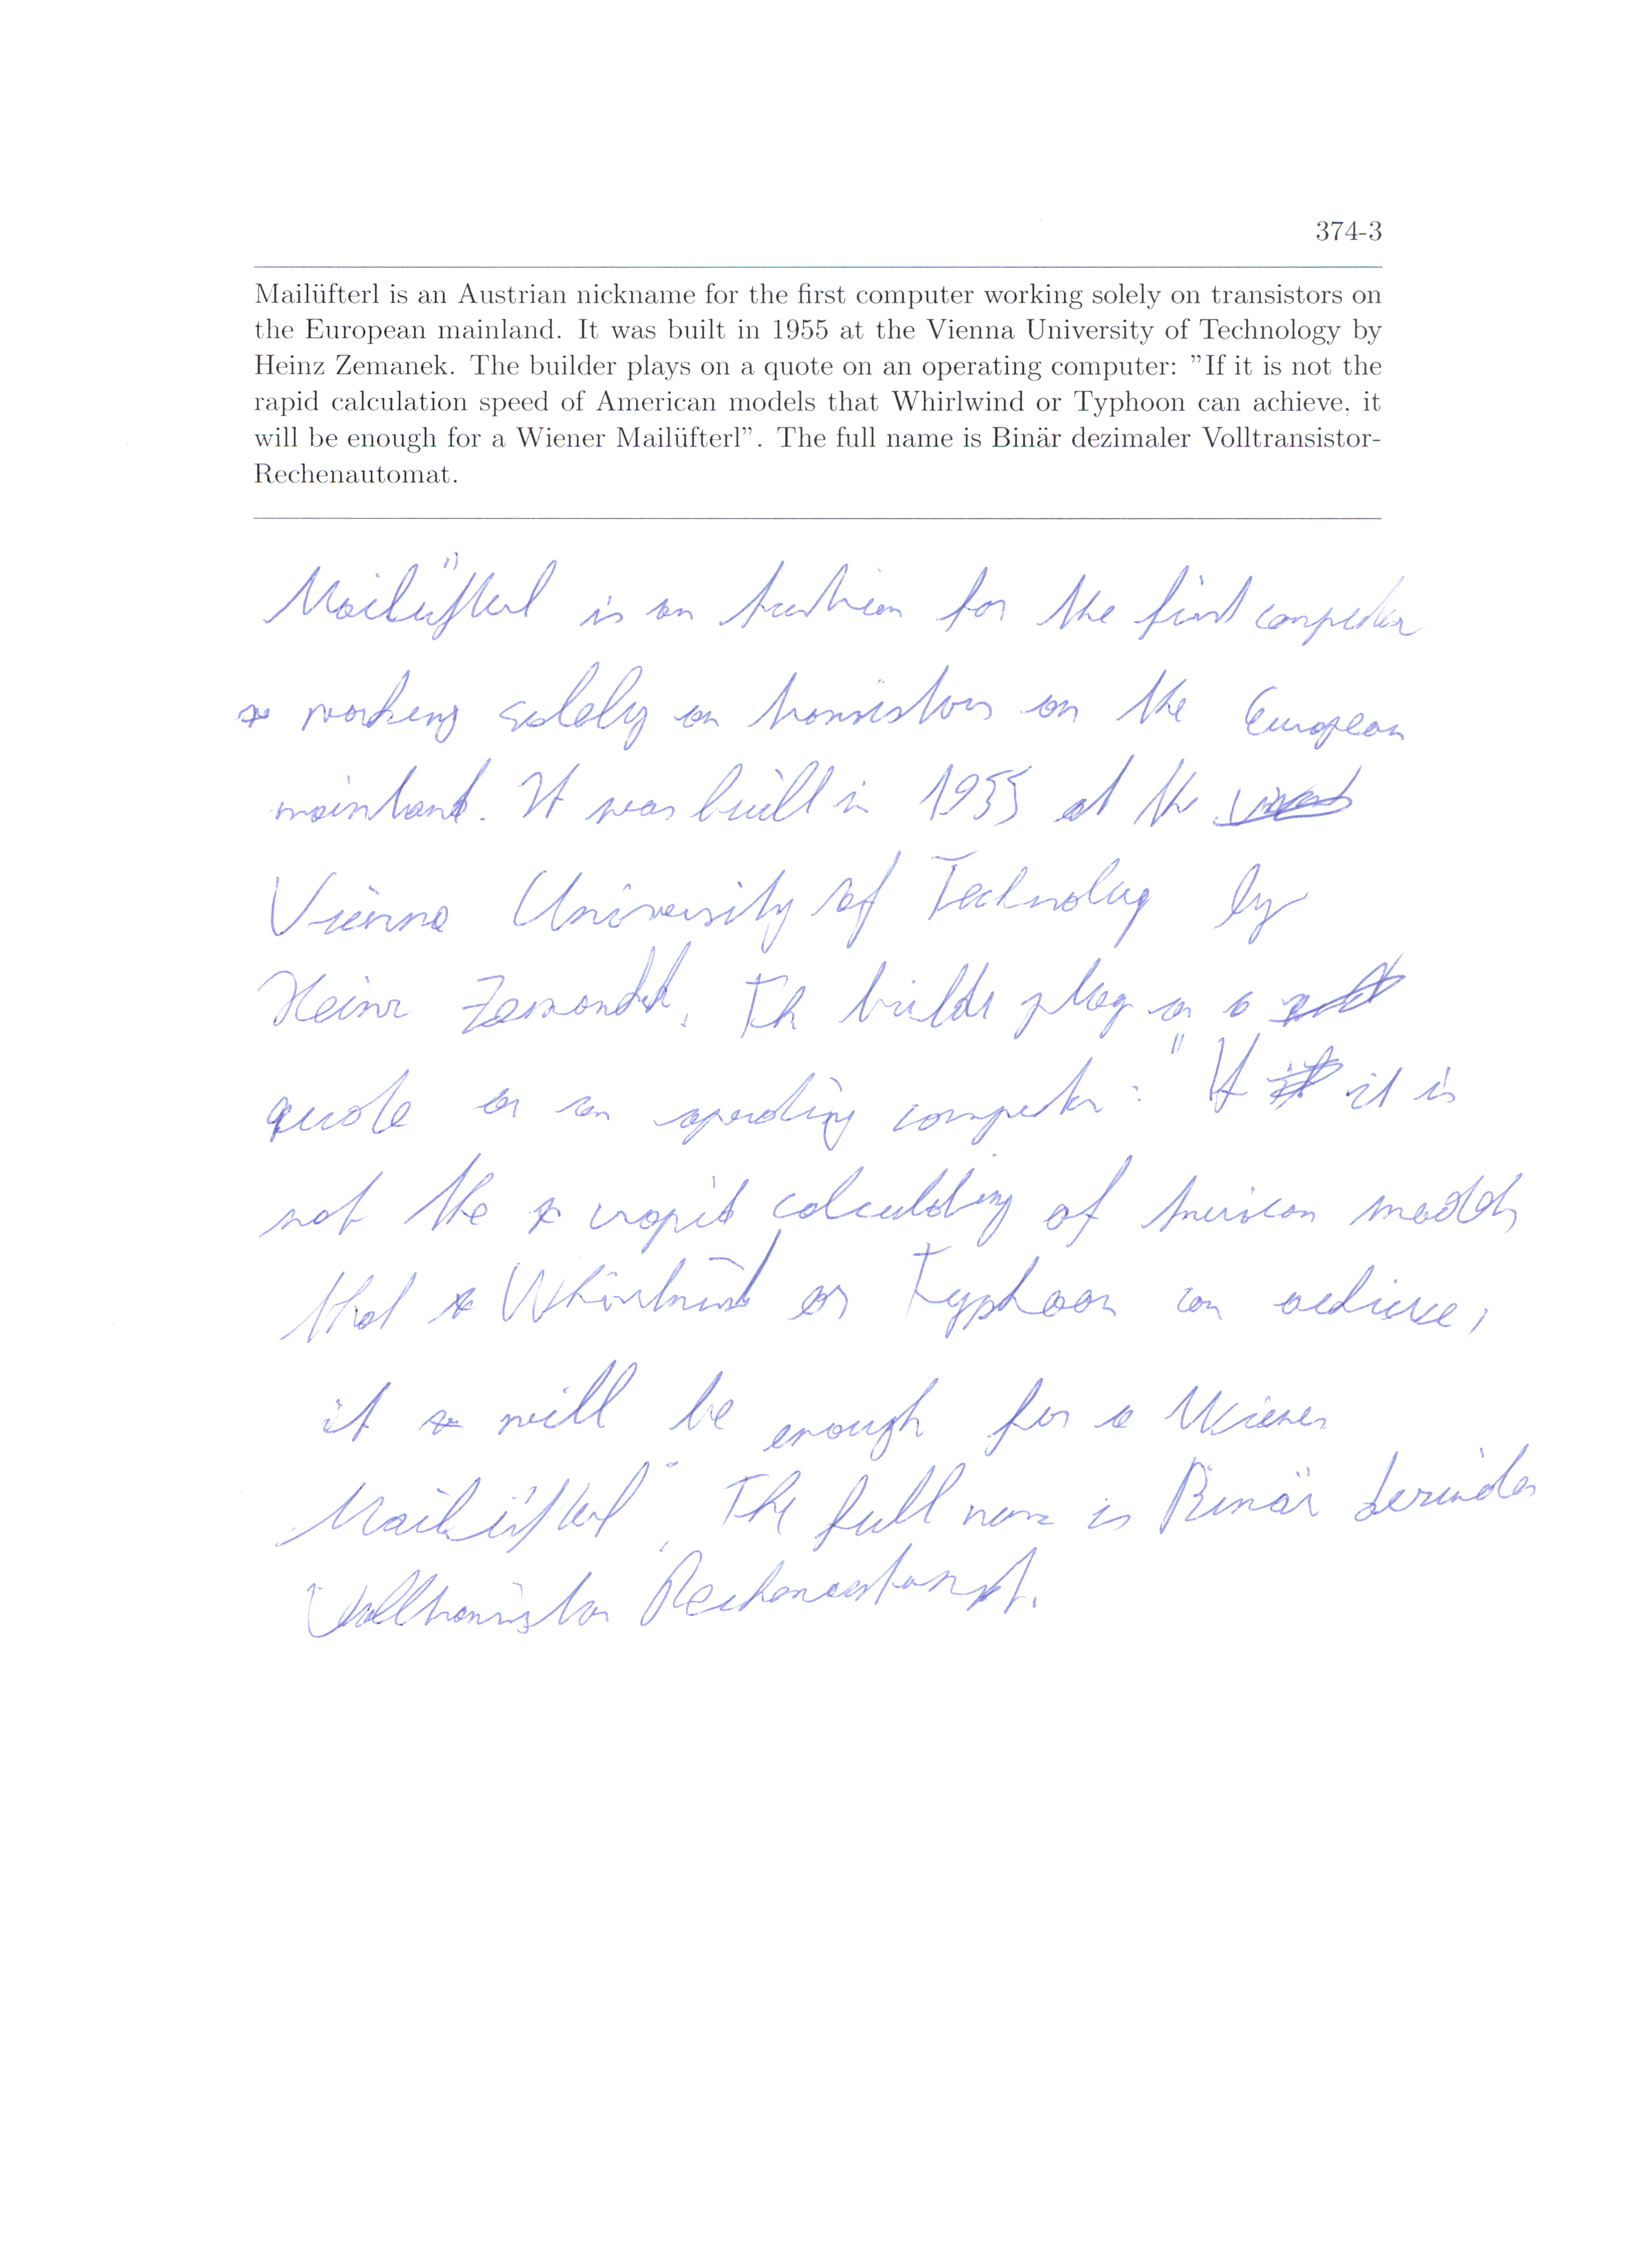 374-3
Mailüfterl is an Austrian nickname for the first computer working solely on transistors on
the European mainland. It was built in 1955 at the Vienna University of Technology by
Heinz Zemanek. The builder plays on a quote on an operating computer: "If it is not the
rapid calculation speed of American models that Whirlwind or Typhoon can achieve, it
will be enough for a Wiener Mailüfterl". The full name is Binär dezimaler Volltransistor-
Rechenautomat.
Mailüfterl is an Austrian for the first computer
working solely on transistors on the European
mainland. It was built in 1955 at the
Vienna University of Technology by
Heinz Zemanek. The builder plays on a
quote on an operating computer: "If it is
not the rapid calculating of American models
that Whirlwind or Typhoon can achieve,
it will be enough for a Wiener
Mailüfterl". The full name is Binär dezimaler
Volltransistor Rechenautomat.